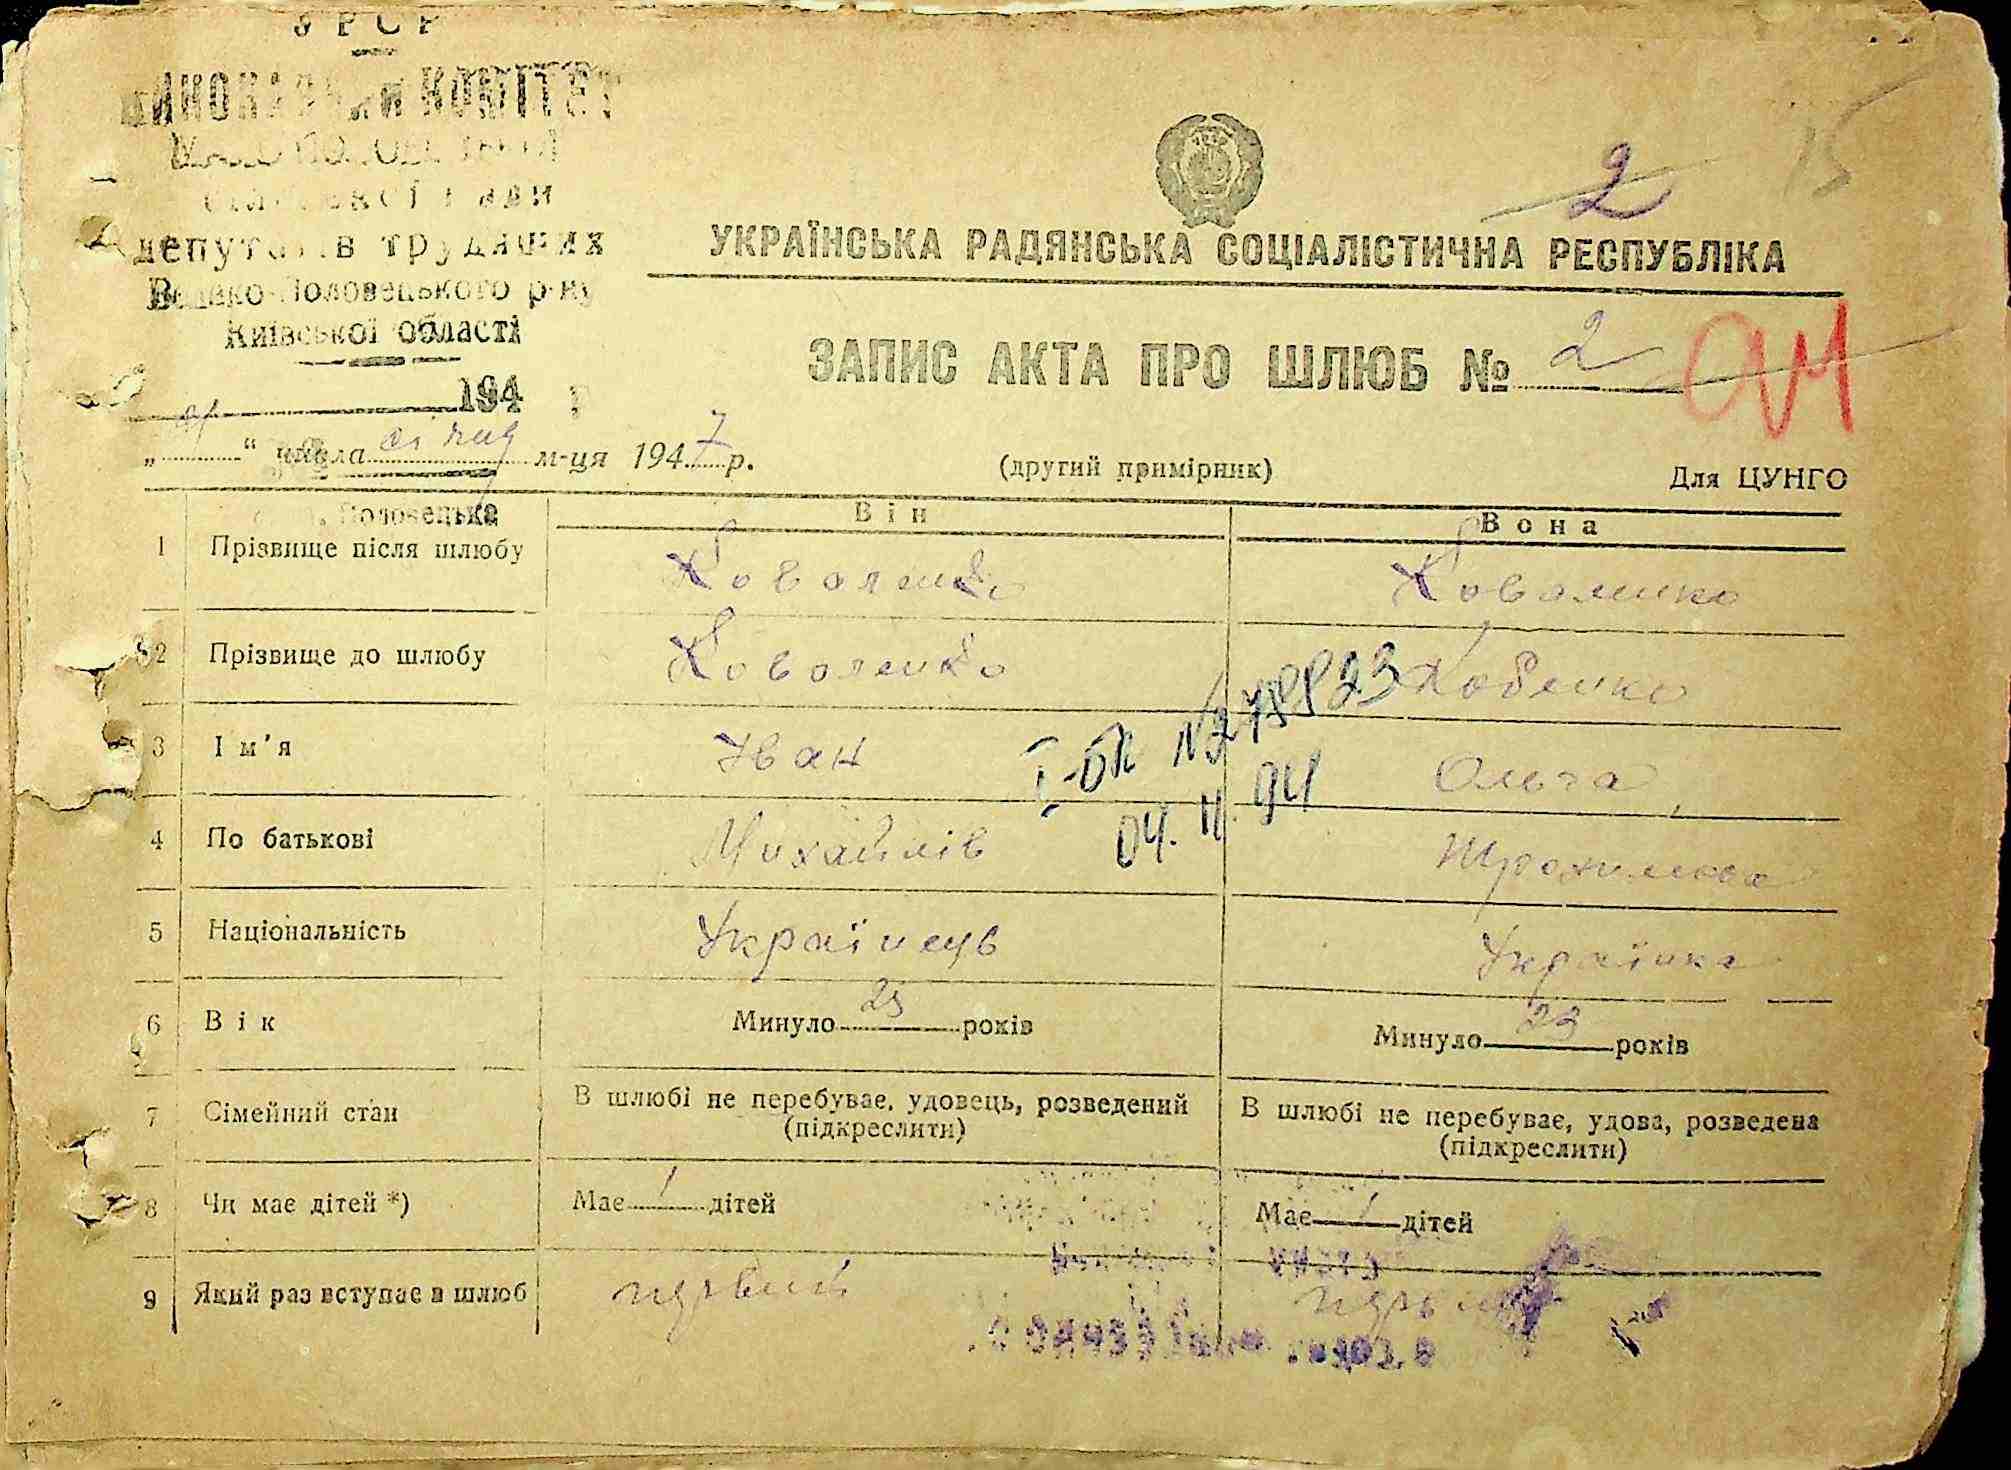 УРСР
КОМІТЕТ
депутатів трудящих
Велико-Половецького р-ну
Київської області
194 р
2
15
УКРАЇНСЬКА РАДЯНСЬКА СОЦІАЛІСТИЧНА РЕСПУБЛІКА
ЗАПИС АКТА ПРО ШЛЮБ № 2
„ “ числа січня м-ця 1947 р.
(другий примірник)
Для ЦУНГО
Половецька
Він Вона
1 Прізвище після шлюбу Коваленко Коваленко
2 Прізвище до шлюбу Коваленко
3 Ім'я Іван Ольга
І-ОК №278823
04.11.94
4 По батькові Михайлів Трохимова
5 Національність Українець Українка
6 Вік Минуло 25 років Минуло 23 років
7 Сімейний стан В шлюбі не перебуває, удовець, розведений (підкреслити) В шлюбі не перебуває, удова, розведена (підкреслити)
8 Чи має дітей *) Має 1 дітей Має 1 дітей
9 Який раз вступає в шлюб первий